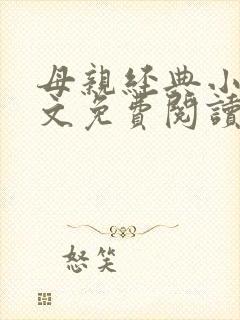 母親經典小
文免費閱讀
怒笑